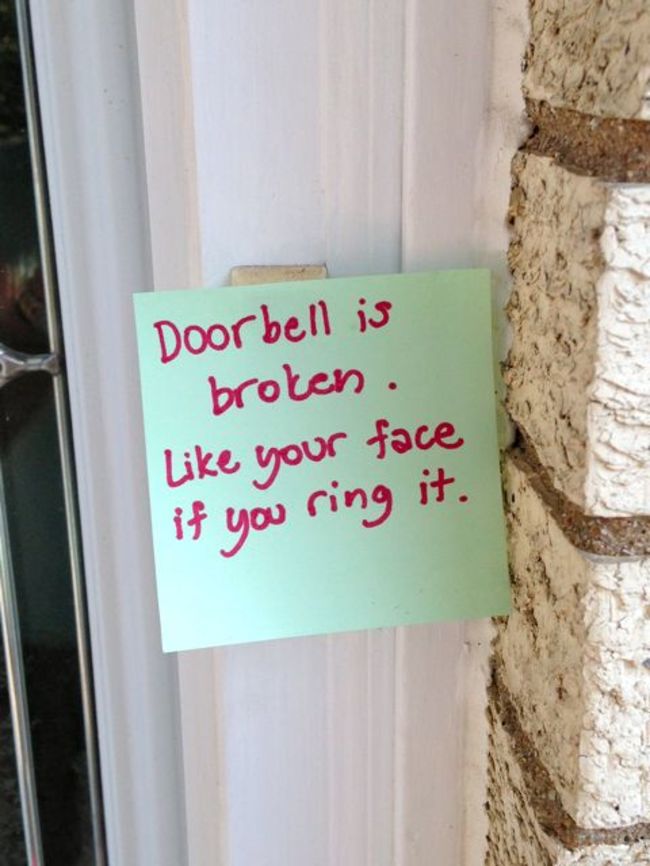 Doorbell is
broken.
Like your face
if you ring it.